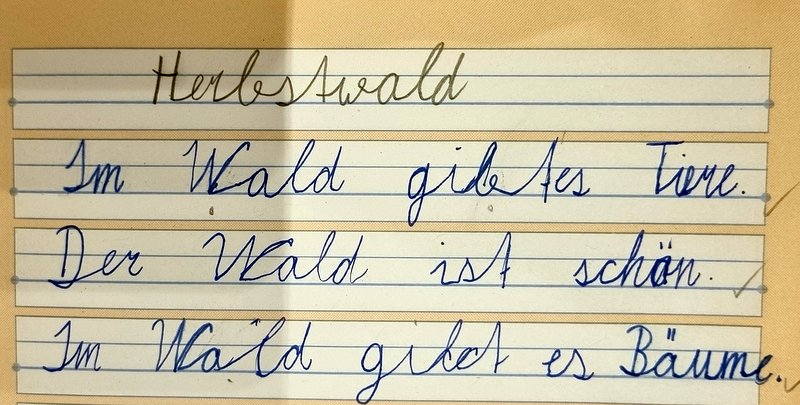 Herbstwald
Im Wald gibt es Tiere.
Der Wald ist schön.
Im Wald gibt es Bäume.